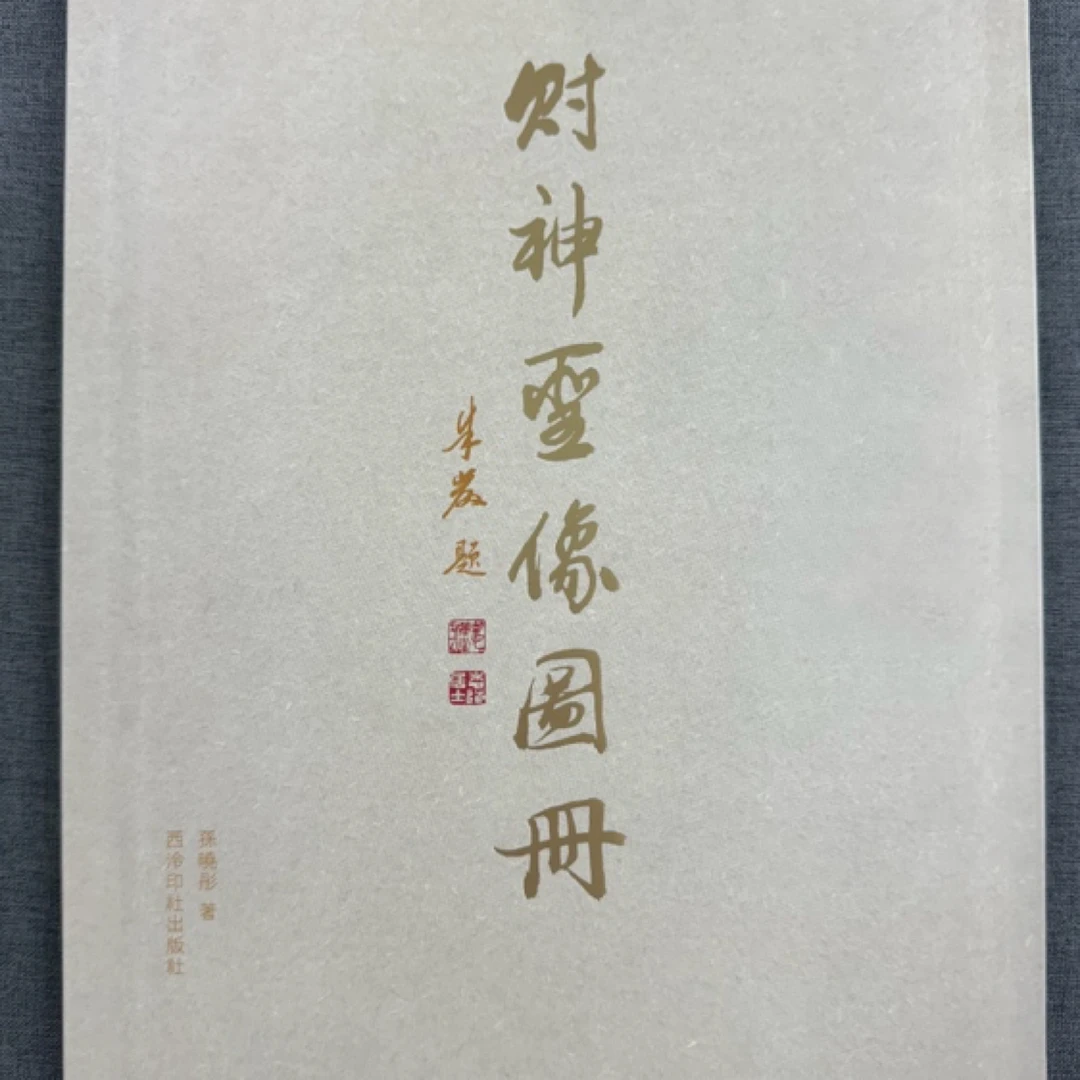 财神聖像圖冊
朱敳 题
孫曉彤 著
西泠印社出版社